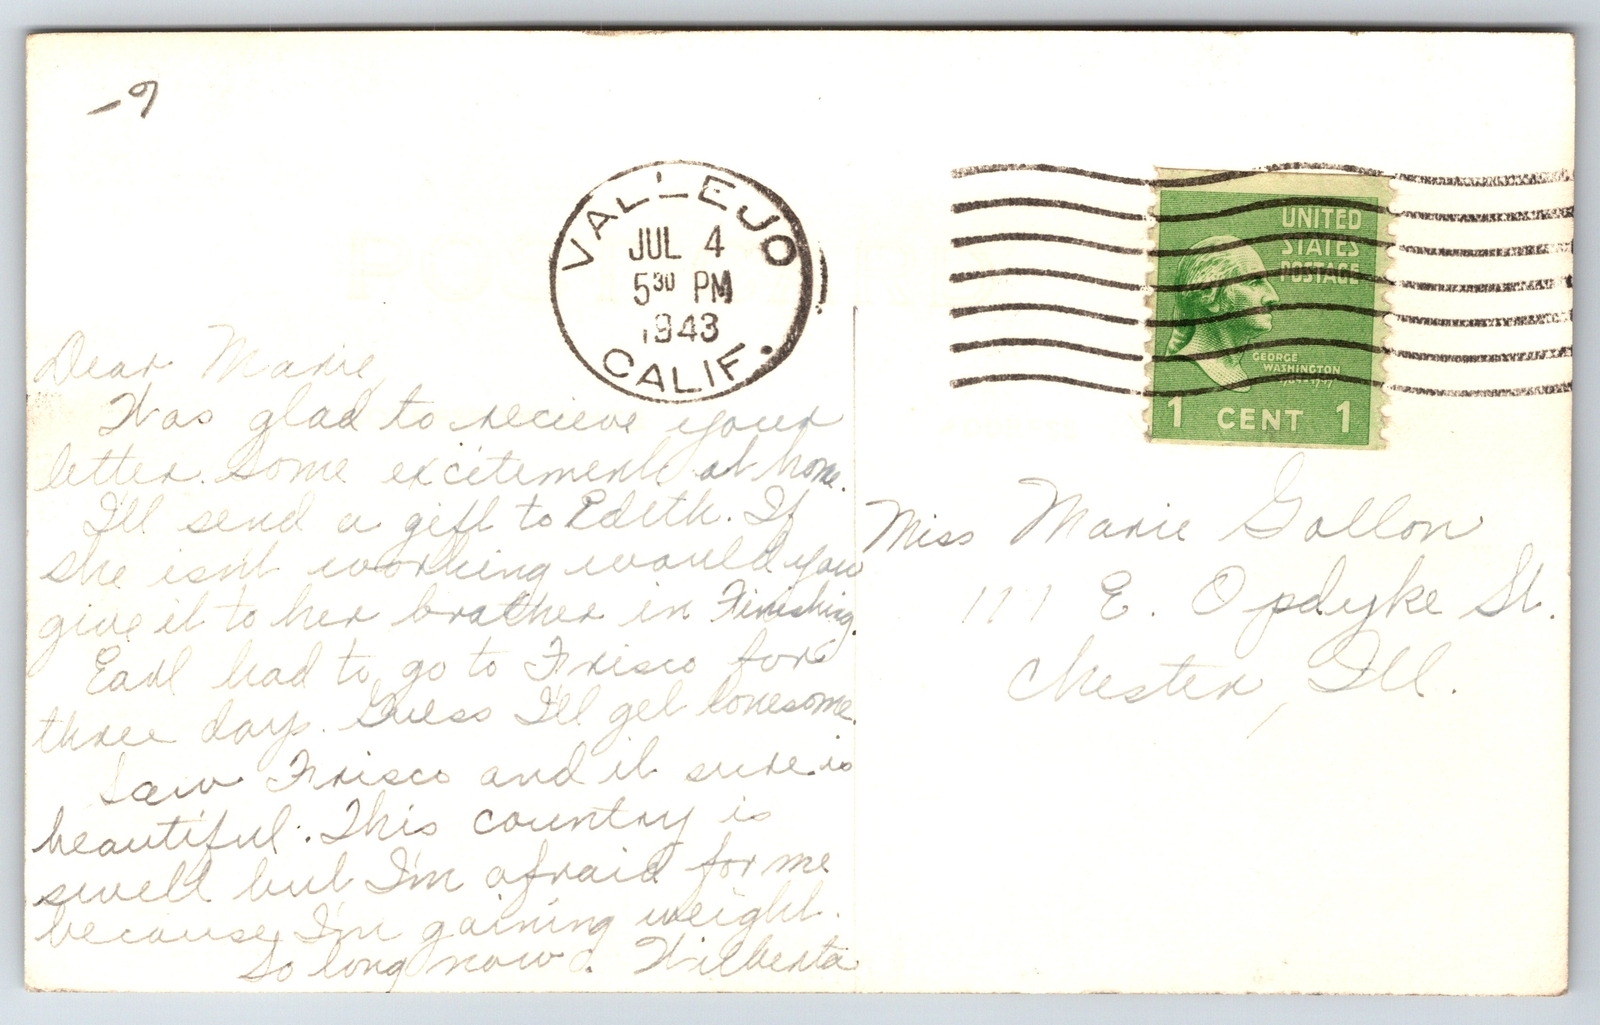 -9
VALLEJO
JUL 4
5 30 PM
1943
CALIF.
UNITED
STATES
POSTAGE
GEORGE
WASHINGTON
1 CENT 1
Dear Marie,
Was glad to recieve your
letter. Some excitement at home.
I'll send a gift to Edith. If
she isn't working would you
give it to her brother in Finishing.
Earl had to go to Frisco for
three days. Guess I'll get lonesome.
Saw Frisco and it sure is
beautiful. This country is
swell but I'm afraid for me
because I'm gaining weight.
So long now. Wilberta
Miss Marie Gollon
111 E. Opdyke St.
Chester, Ill.